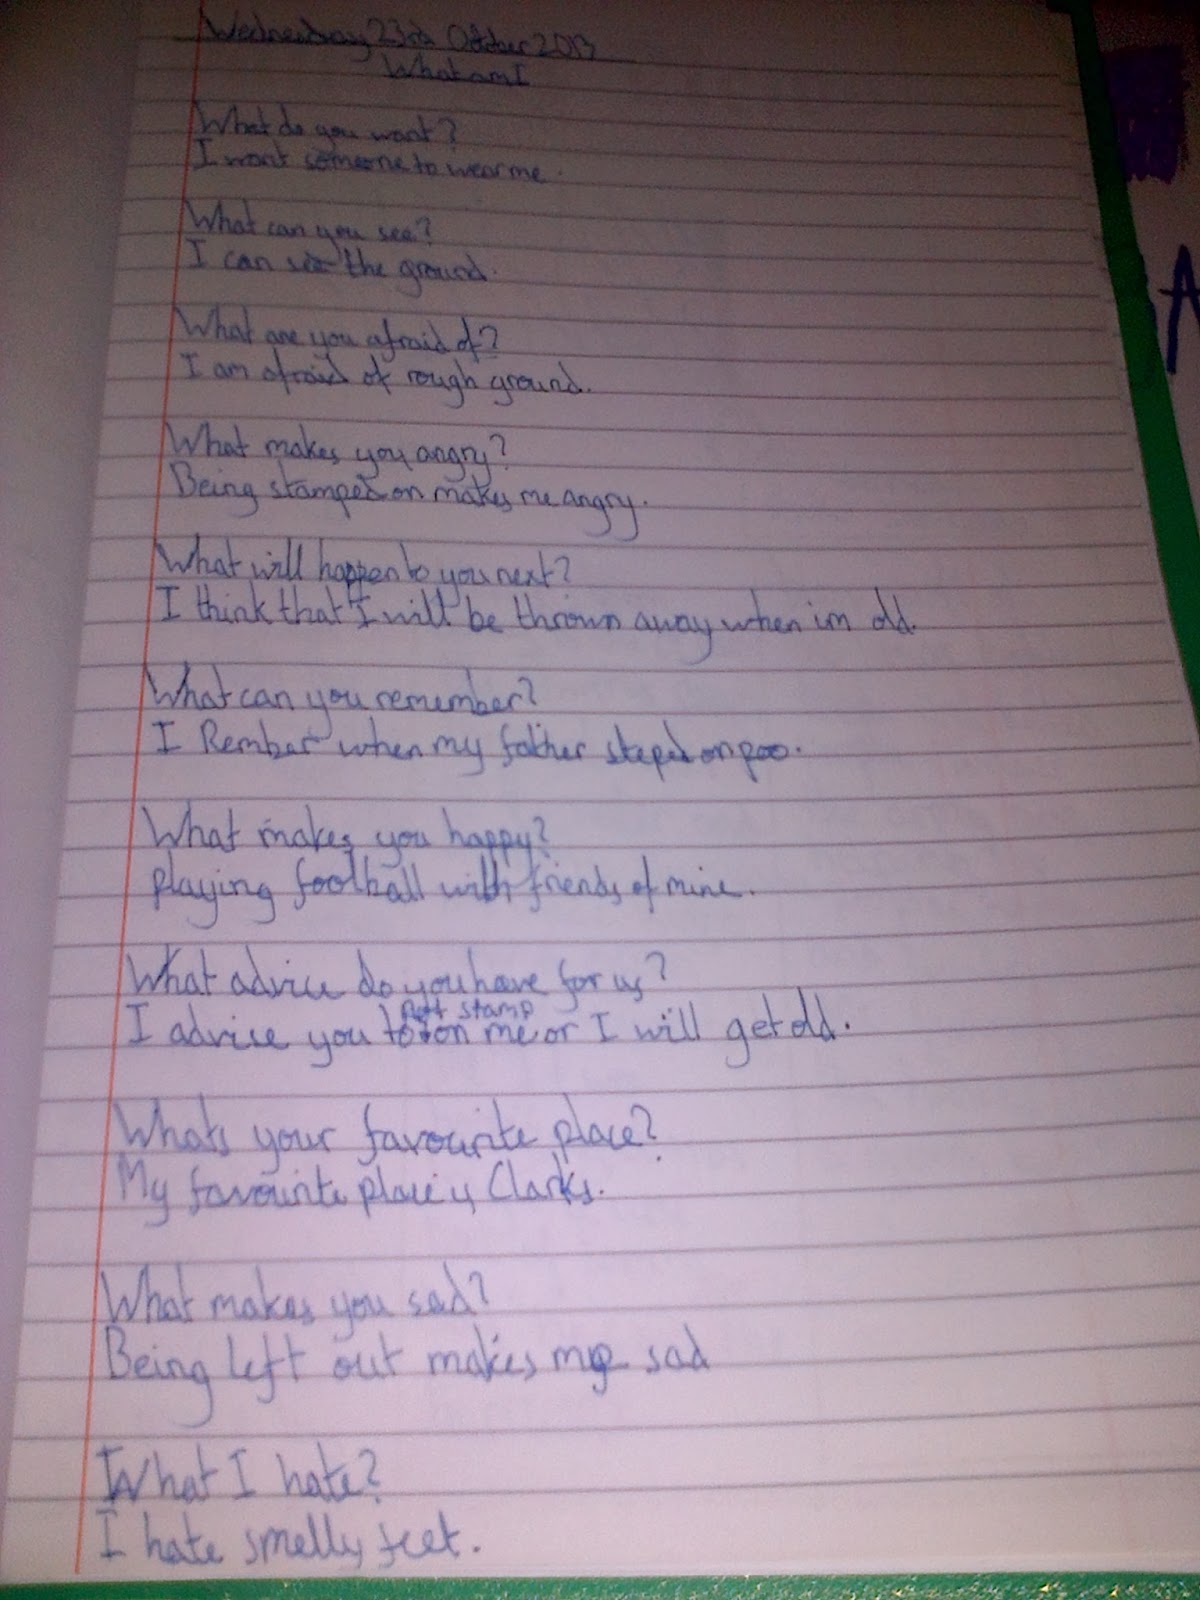 Wednesday 23rd October 2013
What am I
What do you want?
I want someone to wear me.
What can you see?
I can see the ground.
What are you afraid of?
I am afraid of rough ground.
What makes you angry?
Being stamped on makes me angry.
What will happen to you next?
I think that I will be thrown away when im old.
What can you remember?
I Rember when my father steped on poo.
What makes you happy?
playing football with friends of mine.
What advice do you have for us?
not stamp
I advise you to on me or I will get old.
Whats your favourite place?
My favourite place is Clarks.
What makes you sad?
Being left out makes me sad
What I hate?
I hate smelly feet.
A